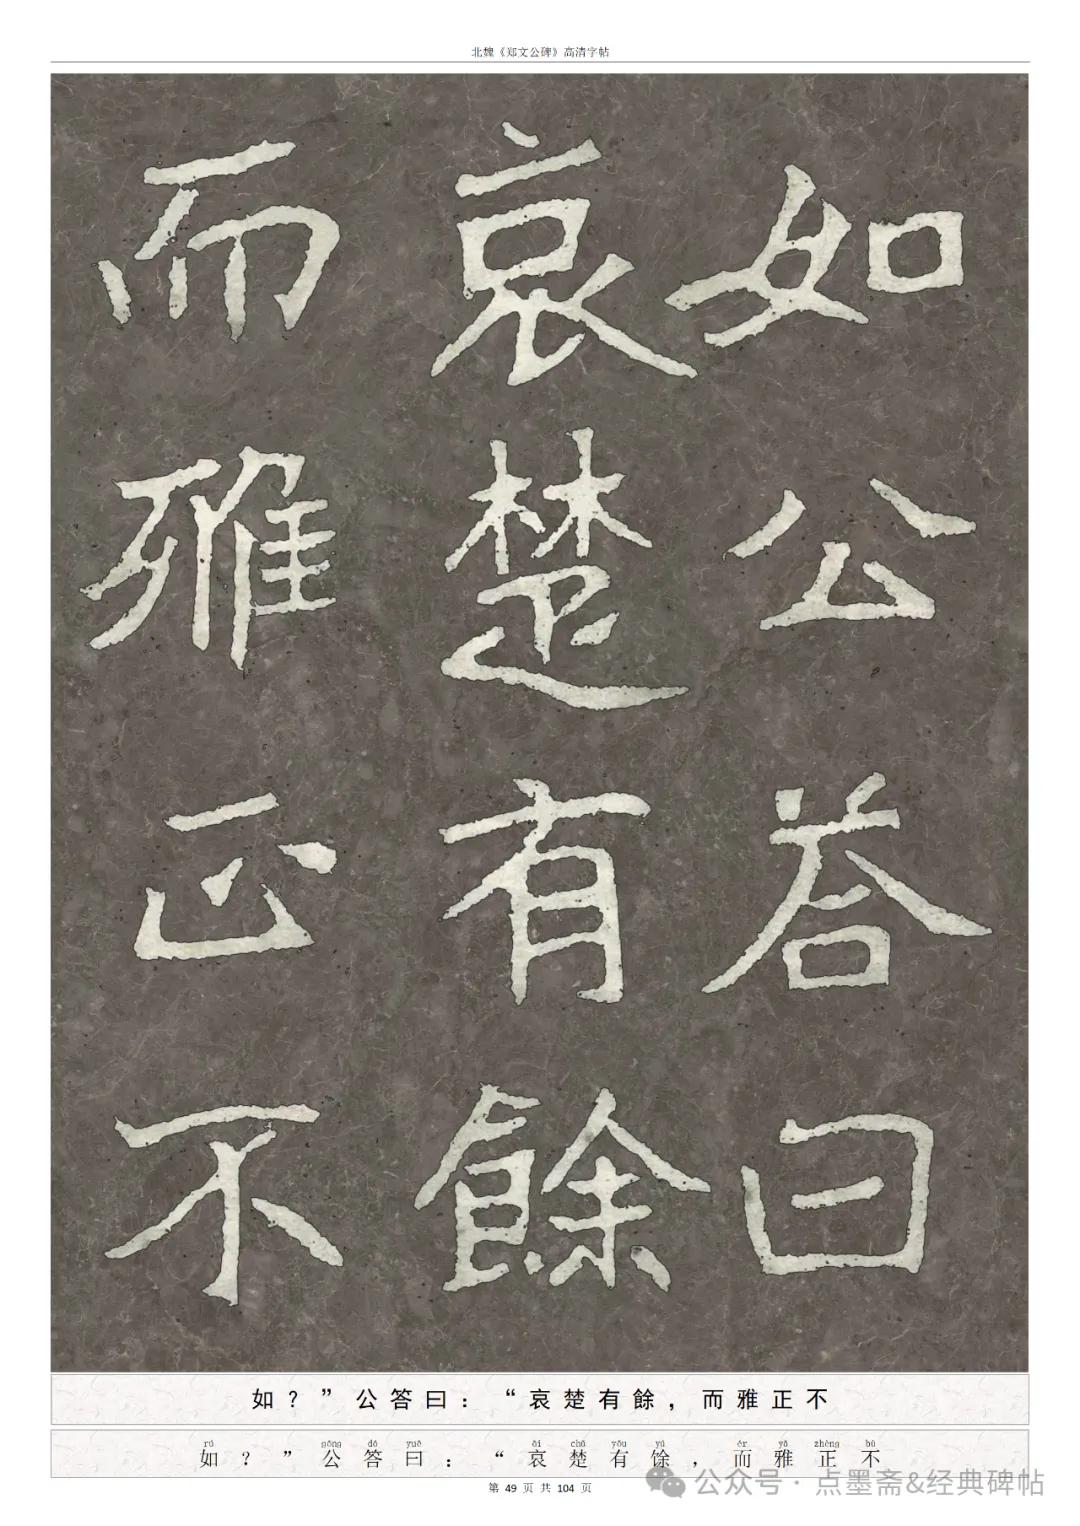 北魏《郑文公碑》高清字帖
如公荅曰
哀楚有餘
而雅正不
如？”公答曰：“哀楚有餘，而雅正不
rú gōng dá yuē āi chǔ yǒu yú ér yǎ zhèng bù
如？”公答曰：“哀楚有馀，而雅正不
公众号 · 点墨斋&经典碑帖
第 49 页 共 104 页